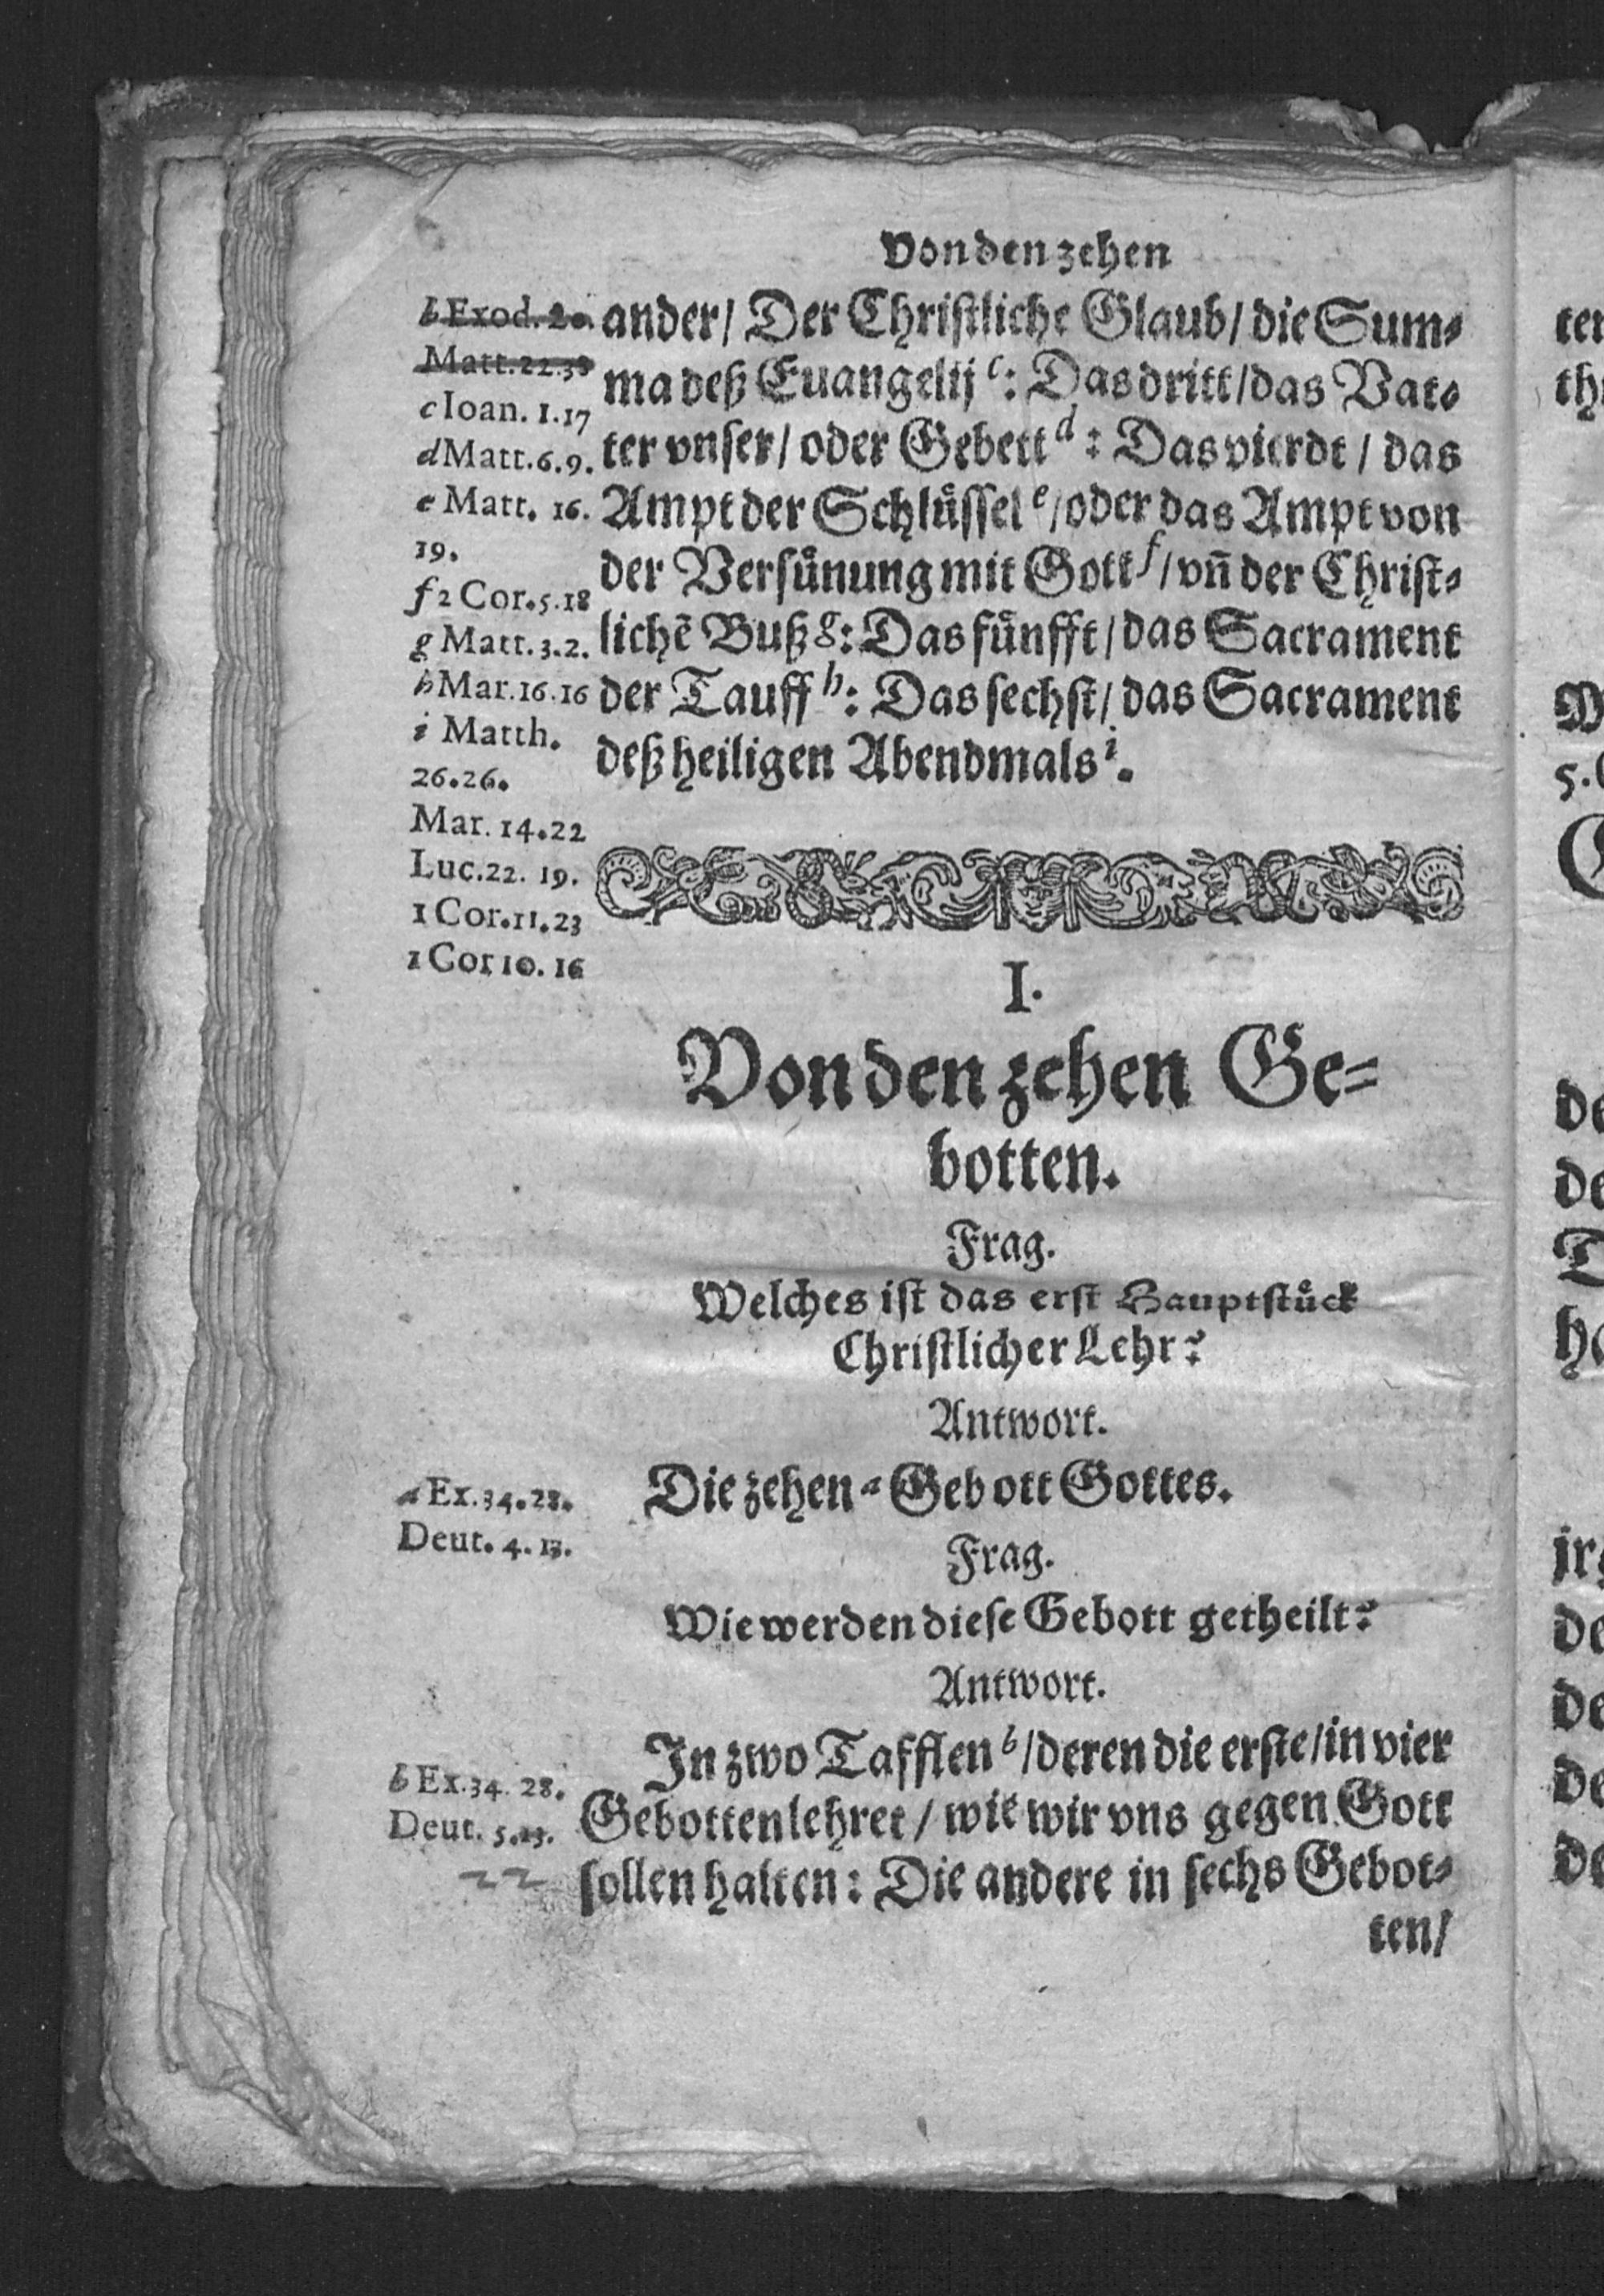 Von den zehen
b Exod. 20.
Matt. 22.38
c Ioan. 1.17
d Matt. 6.9.
e Matt. 16.
19.
f 2 Cor. 5.18
g Matt. 3.2.
h Mar. 16.16
i Matth.
26.26.
Mar. 14.22
Luc. 22. 19.
1 Cor. 11.23
1 Cor 10. 16
ander/ Der Christliche Glaub/ die Sum⸗
ma deß Euangelij c: Das dritt/ das Vat⸗
ter vnser/ oder Gebett d: Das vierdt/ das
Ampt der Schlüssel e/ oder das Ampt von
der Versünung mit Gott f/ vn̄ der Christ⸗
lichē Buß g: Das fünfft/ das Sacrament
der Tauff h: Das sechst/ das Sacrament
deß heiligen Abendmals i.
I.
Von den zehen Ge⸗
botten.
Frag.
Welches ist das erst Hauptstück
Christlicher Lehr?
Antwort.
a Ex. 34.28.
Deut. 4. 13.
Die zehen a Gebott Gottes.
Frag.
Wie werden diese Gebott getheilt?
Antwort.
b Ex. 34. 28.
Deut. 5.
22
In zwo Tafflen b/ deren die erste/ in vier
Gebotten lehret/ wie wir vns gegen Gott
sollen halten: Die andere in sechs Gebot⸗
ten/